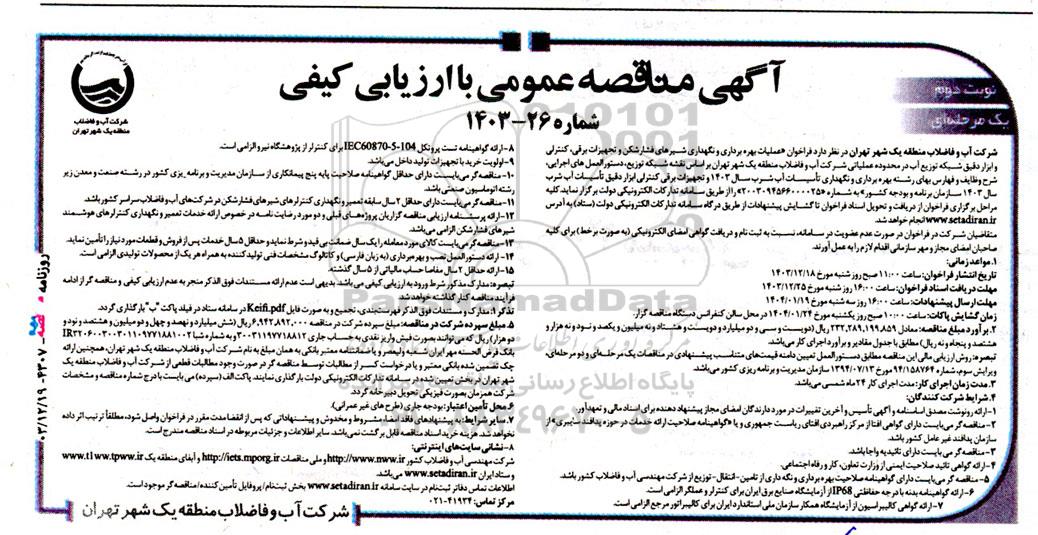 آگهی مناقصه عمومی با ارزیابی کیفی
شماره ۲۶-۱۴۰۳
نوبت دوم
یک مرحله‌ای
شرکت آب و فاضلاب
منطقه یک شهر تهران
شرکت آب و فاضلاب منطقه یک شهر تهران در نظر دارد فراخوان «عملیات بهره برداری و نگهداری شیرهای فشارشکن و تجهیزات برقی، کنترلی
و ابزار دقیق شبکه توزیع آب در محدوده عملیاتی شرکت آب و فاضلاب منطقه یک شهر تهران بر اساس نقشه شبکه توزیع، دستورالعمل های اجرایی،
شرح وظایف و فهارس بهای رشته بهره برداری و نگهداری تأسیسات آب شرب سال ۱۴۰۳ و تجهیزات برقی کنترلی ابزار دقیق تأسیسات آب شرب
سال ۱۴۰۳ سازمان برنامه و بودجه کشور» به شماره «۲۰۰۳۰۹۴۵۶۶۰۰۰۰۲۵» را از طریق سامانه تدارکات الکترونیکی دولت برگزار نماید. کلیه
مراحل برگزاری فراخوان از دریافت و تحویل اسناد فراخوان تا گشایش پیشنهادات از طریق درگاه سامانه تدارکات الکترونیکی دولت (ستاد) به آدرس
www.setadiran.ir انجام خواهد شد.
متقاضیان شرکت در فراخوان در صورت عدم عضویت در سامانه، نسبت به ثبت نام و دریافت گواهی امضای الکترونیکی (به صورت برخط) برای کلیه
صاحبان امضای مجاز و مهر سازمانی اقدام لازم را به عمل آورند.
۱. مواعد زمانی:
تاریخ انتشار فراخوان: ساعت ۱۱:۰۰ صبح روز شنبه مورخ ۱۴۰۳/۱۲/۱۸
مهلت دریافت اسناد فراخوان: ساعت ۱۶:۰۰ روز شنبه مورخ ۱۴۰۳/۱۲/۲۵
مهلت ارسال پیشنهادات: ساعت ۱۶:۰۰ روز سه شنبه مورخ ۱۴۰۴/۰۱/۱۹
زمان گشایش پاکات: ساعت ۱۰:۰۰ صبح روز یکشنبه مورخ ۱۴۰۴/۰۱/۲۴ در محل سالن کنفرانس دستگاه مناقصه گزار.
۲. برآورد مبلغ مناقصه: معادل ۲۳۲,۲۸۹,۱۹۹,۸۵۹ ریال (دویست و سی و دو میلیارد و دویست و هشتاد و نه میلیون و یکصد و نود و نه هزار و
هشتصد و پنجاه و نه ریال) مطابق با جدول مقادیر و برآورد اجرای کار می‌باشد.
تبصره: روش ارزیابی مالی این مناقصه مطابق دستورالعمل تعیین دامنه قیمت‌های متناسب پیشنهادی در مناقصات یک مرحله‌ای و دو مرحله‌ای،
ویرایش سوم، شماره ۹۴/۱۵۸۷۶۴ مورخ ۱۳۹۴/۰۷/۱۳ سازمان مدیریت و برنامه ریزی کشور می‌باشد.
۳. مدت زمان اجرای کار: مدت اجرای کار ۲۴ ماه شمسی می‌باشد.
۴. شرایط شرکت کنندگان:
۱- ارائه رونوشت مصدق اساسنامه و آگهی تأسیس و آخرین تغییرات در مورد دارندگان امضای مجاز پیشنهاد دهنده برای اسناد مالی و تعهدآور.
۲- مناقصه گر می‌بایست دارای گواهی افتا از مرکز راهبردی افتای ریاست جمهوری و یا «گواهینامه صلاحیت ارائه خدمات در حوزه پدافند سایبری» از
سازمان پدافند غیر عامل کشور باشد.
۳- مناقصه گر می‌بایست دارای تائیدیه واجا باشد.
۴- ارائه گواهی تائید صلاحیت ایمنی از وزارت تعاون، کار و رفاه اجتماعی.
۵- مناقصه گر می‌بایست دارای گواهینامه صلاحیت بهره برداری و نگه داری از تامین-انتقال-توزیع از شرکت مهندسی آب و فاضلاب کشور باشد.
۶- ارائه گواهینامه بدنه با درجه حفاظتی IP68 از آزمایشگاه صنایع برق ایران برای کنترلر و عملگر الزامی است.
۷- ارائه گواهی کالیبراسیون از آزمایشگاه همکار سازمان ملی استاندارد ایران برای کالیبراتور مرجع الزامی است.
۸- ارائه گواهینامه تست پروتکل IEC60870-5-104 برای کنترلر از پژوهشگاه نیرو الزامی است.
۹- اولویت خرید با تجهیزات تولید داخل می‌باشد.
۱۰- مناقصه گر می‌بایست دارای حداقل گواهینامه صلاحیت پایه پنج پیمانکاری از سازمان مدیریت و برنامه ریزی کشور در رشته صنعت و معدن زیر
رشته اتوماسیون صنعتی باشد.
۱۱- مناقصه گر می‌بایست دارای حداقل ۲ سال سابقه تعمیر و نگهداری کنترلرهای شیرهای فشارشکن در شرکت های آب و فاضلاب سراسر کشور باشد.
۱۲- ارائه پرسشنامه ارزیابی مناقصه گزاران پروژه‌های قبلی و دو مورد رضایت نامه در خصوص ارائه خدمات تعمیر و نگهداری کنترلرهای هوشمند
شیرهای فشارشکن الزامی می‌باشد.
۱۳- مناقصه گر می‌بایست کالای مورد معامله را یک سال ضمانت بی قید و شرط نماید و حداقل ۵ سال خدمات پس از فروش و قطعات مورد نیاز را تأمین نماید.
۱۴- ارائه دستورالعمل نصب و بهره‌برداری (به زبان فارسی) و کاتالوگ مشخصات فنی تولید کننده به همراه هر یک از محصولات تولیدی الزامی است.
۱۵- ارائه حداقل ۲ سال مفاصا حساب مالیاتی از ۵ سال گذشته.
تبصره: مدارک مذکور شرط ورود به ارزیابی کیفی می باشد. بدیهی است عدم ارائه مستندات فوق الذکر منجر به عدم ارزیابی کیفی و مناقصه گر از ادامه
فرآیند مناقصه کنار گذاشته خواهد شد.
تذکر ۱: مدارک و مستندات فوق الذکر فهرست‌بندی، تجمیع و به صورت فایل Keifi.pdf در سامانه ستاد در فیلد پاکت "ب" بارگذاری گردد.
۵. مبلغ سپرده شرکت در مناقصه: مبلغ سپرده شرکت در مناقصه ۶,۹۴۲,۸۹۲,۰۰۰ ریال (شش میلیارد و نهصد و چهل و دو میلیون و هشتصد و نود و
دو هزار) ریال که می‌توانند بصورت فیش واریز نقدی به حساب جاری ۳۰۰۳۱۱۹۷۷۱۸۸۱۲ و به شماره شبا IR۲۲۰۶۰۰۳۰۰۳۰۱۱۰۹۷۷۱۸۸۱۰۰۲
بانک قرض الحسنه مهر ایران شعبه ولیعصر و یا ضمانتنامه معتبر بانکی به همان مبلغ به نام شرکت آب و فاضلاب منطقه یک شهر تهران، همچنین ارائه
چک تضمین شده بانکی معتبر و یا درخواست کسر از مطالبات توسط مناقصه گر در صورت وجود مطالبات قطعی از شرکت آب و فاضلاب منطقه یک
شهر تهران در بخش تعیین شده در سامانه تدارکات الکترونیکی دولت بارگذاری نمایند. پاکت الف (سپرده) می بایست با درج شماره مناقصه و مشخصات
شرکت همزمان بصورت فیزیکی تحویل دبیرخانه گردد.
۶. محل تامین اعتبار: بودجه جاری (طرح های غیر عمرانی).
۷. سایر شرایط: به پیشنهادهای فاقد امضا، مشروط و مخدوش و پیشنهاداتی که پس از انقضا مدت مقرر در فراخوان واصل شود، مطلقاً ترتیب اثر داده
نخواهد شد. هزینه خرید اسناد مناقصه قابل برگشت نمی‌باشد. سایر اطلاعات و جزئیات مربوطه در اسناد مناقصه مندرج است.
۸- نشانی سایت‌های اینترنتی:
شرکت مهندسی آب و فاضلاب کشور http://www.nww.ir و ملی مناقصات http://iets.mporg.ir و آبفای منطقه یک www.t1ww.tpww.ir
و ستاد ایران www.setadiran.ir می‌باشد.
اطلاعات تماس دفاتر ثبت‌نام در سایت سامانه www.setadiran.ir بخش ثبت‌نام/پروفایل تأمین کننده/مناقصه گر موجود است.
مرکز تماس: ۴۱۹۳۴-۰۲۱
شرکت آب و فاضلاب منطقه یک شهر تهران
روزنامه
۰۳/۱۲/۱۹
ParsNamadData
پایگاه اطلاع رسانی مناقصه و مزایده